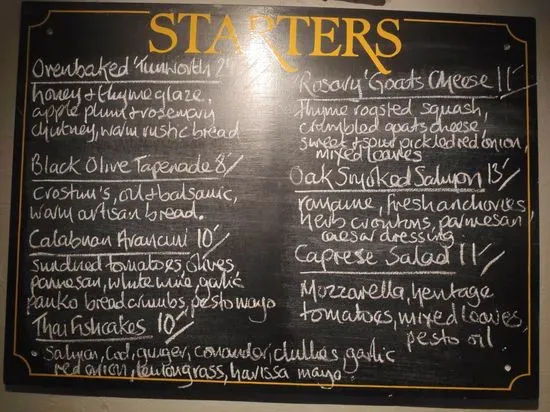 STARTERS
Ovenbaked 'Tunworth'
honey & thyme glaze,
apple plum & rosemary
chutney, warm rustic bread
Black Olive Tapenade 8/
Crostini's, oil & balsamic,
warm artisan bread.
Calabrian Arancini 10/
sundried tomatoes, olives
parmesan, white wine, garlic
panko breadcrumbs, pesto mayo
Thai Fishcakes 10/
• Salmon, Cod, ginger, coriander, chillies, garlic
red onion, lemongrass, harissa mayo.
'Rosary' Goats Cheese 11/
thyme roasted squash,
crumbled goats cheese,
sweet & sour pickled red onion,
mixed leaves
Oak Smoked Salmon 13/
romaine, fresh anchovies,
herb croutons, parmesan
caesar dressing
Caprese Salad 11/
Mozzarella, heritage
tomatoes, mixed leaves,
pesto oil